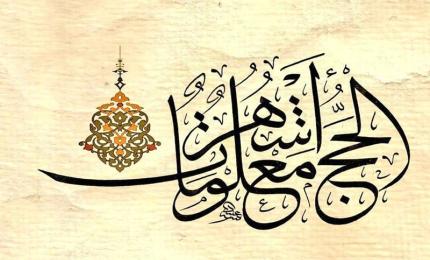 الْحَجُّ أَشْهُرٌ مَعْلُومَاتٌ